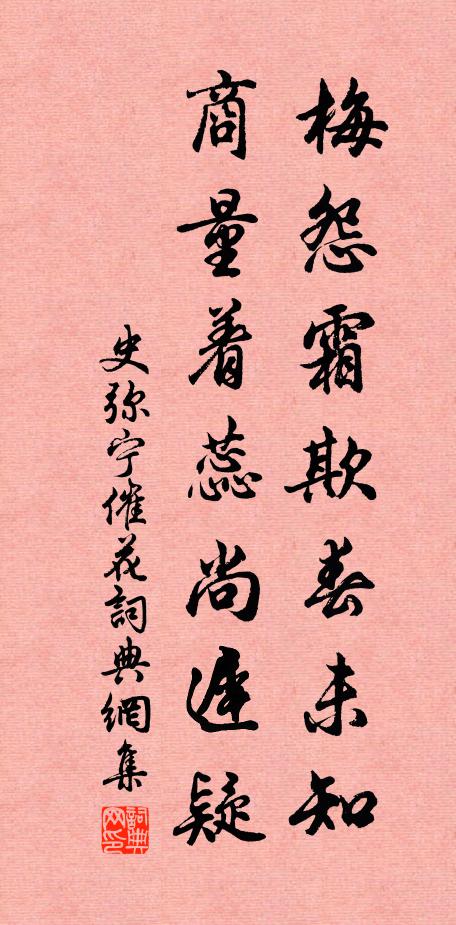 梅怨霜欺春未知
商量着蕊尚遲疑
史弥宁催花詞典網集
詞典网印